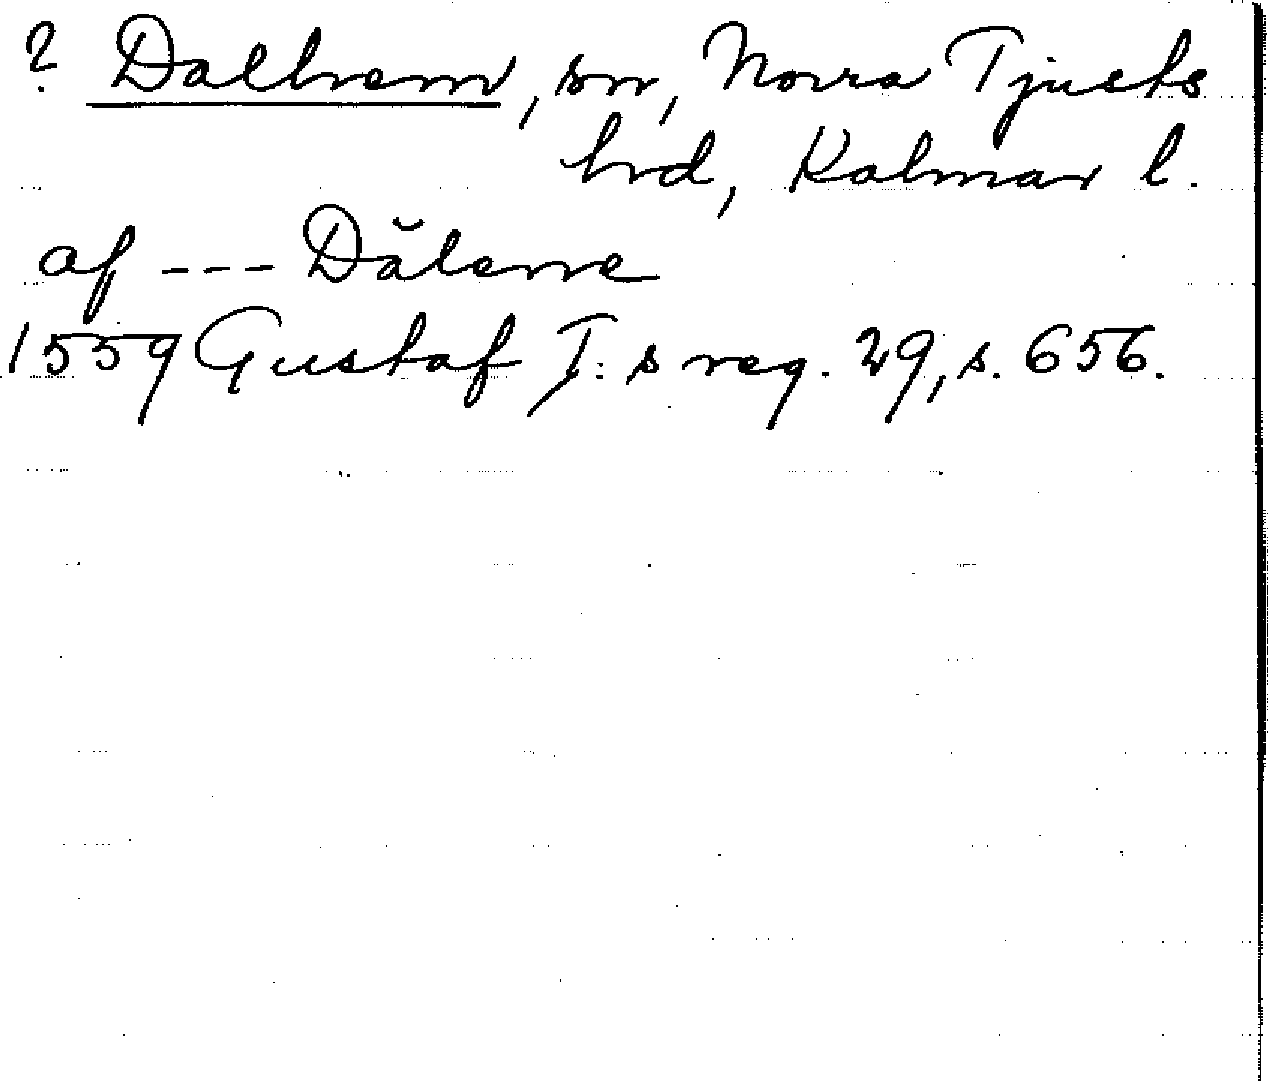 ? Dalhem, sn, Norra Tjusts
hrd, Kalmar l.
af --- Dălerne
1559 Gustaf I:s reg. 29, s. 656.